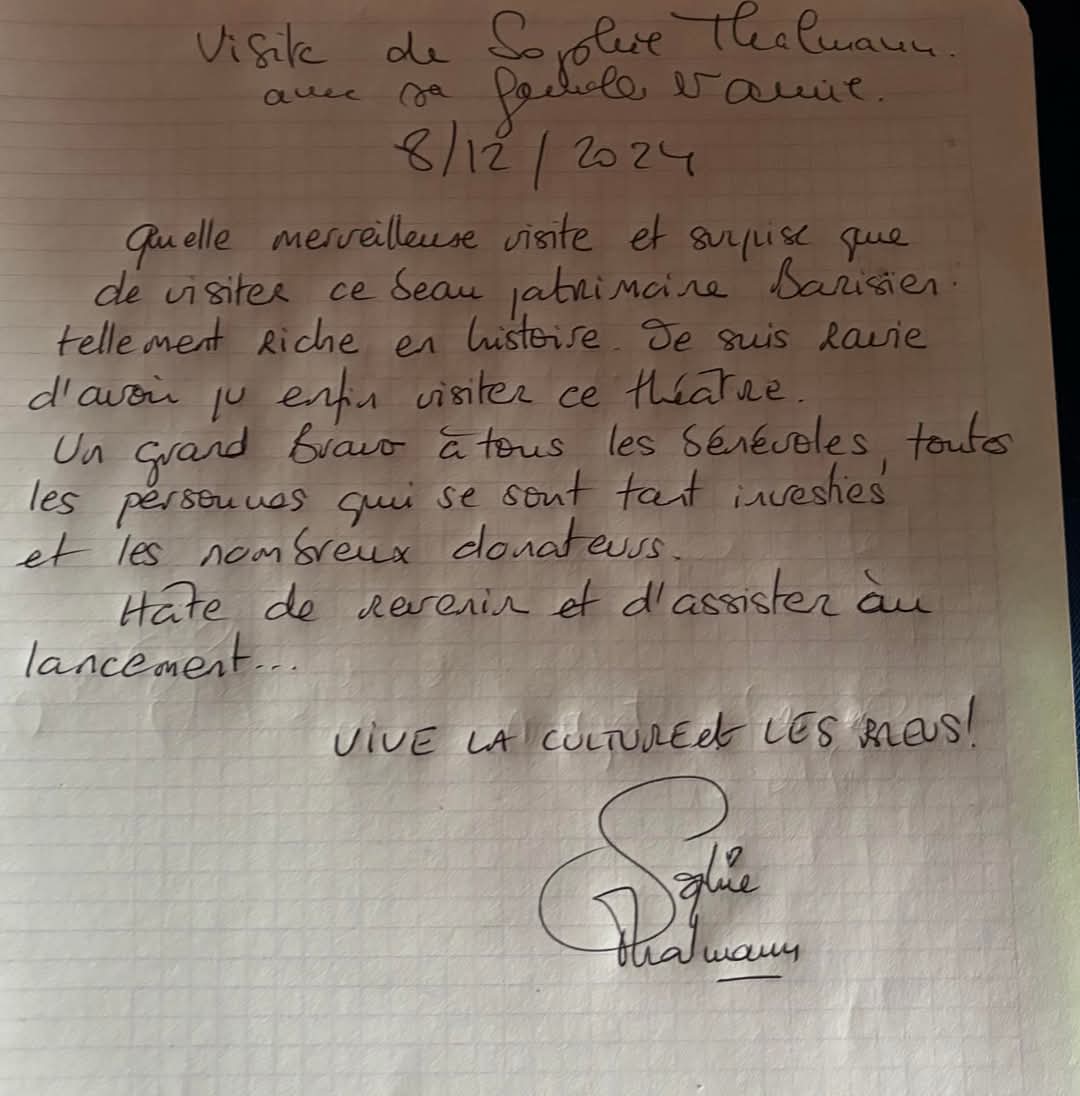 Visite de Sophie Thalmann.
avec sa famille
8/12/2024
Quelle merveilleuse visite et surpise que
de visiter ce beau patrimoine Barisien.
tellement Riche en histoire. Je suis Ravie
d'avoir pu enfin visiter ce théâtre.
Un grand bravo à tous les bénévoles, toutes
les personnes qui se sont tant investies
et les nombreux donateurs.
Hâte de revenir et d'assister au
lancement...
VIVE LA CULTURE et LES
Sophie
Thalmann